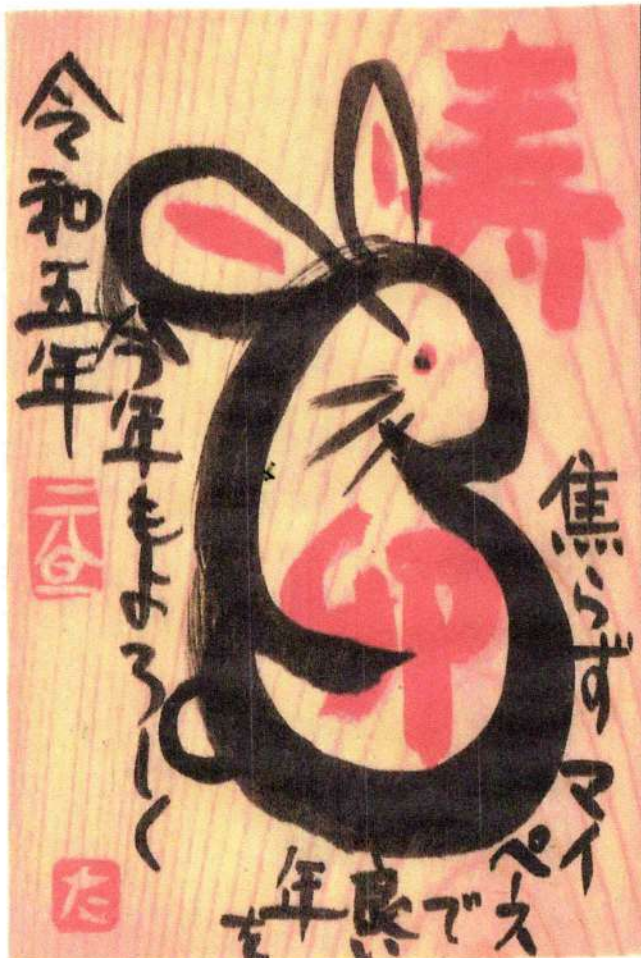 寿
卯
焦らず
マイ
ペース
で
良い
年
を
今年もよろしく
令和五年
元旦
た